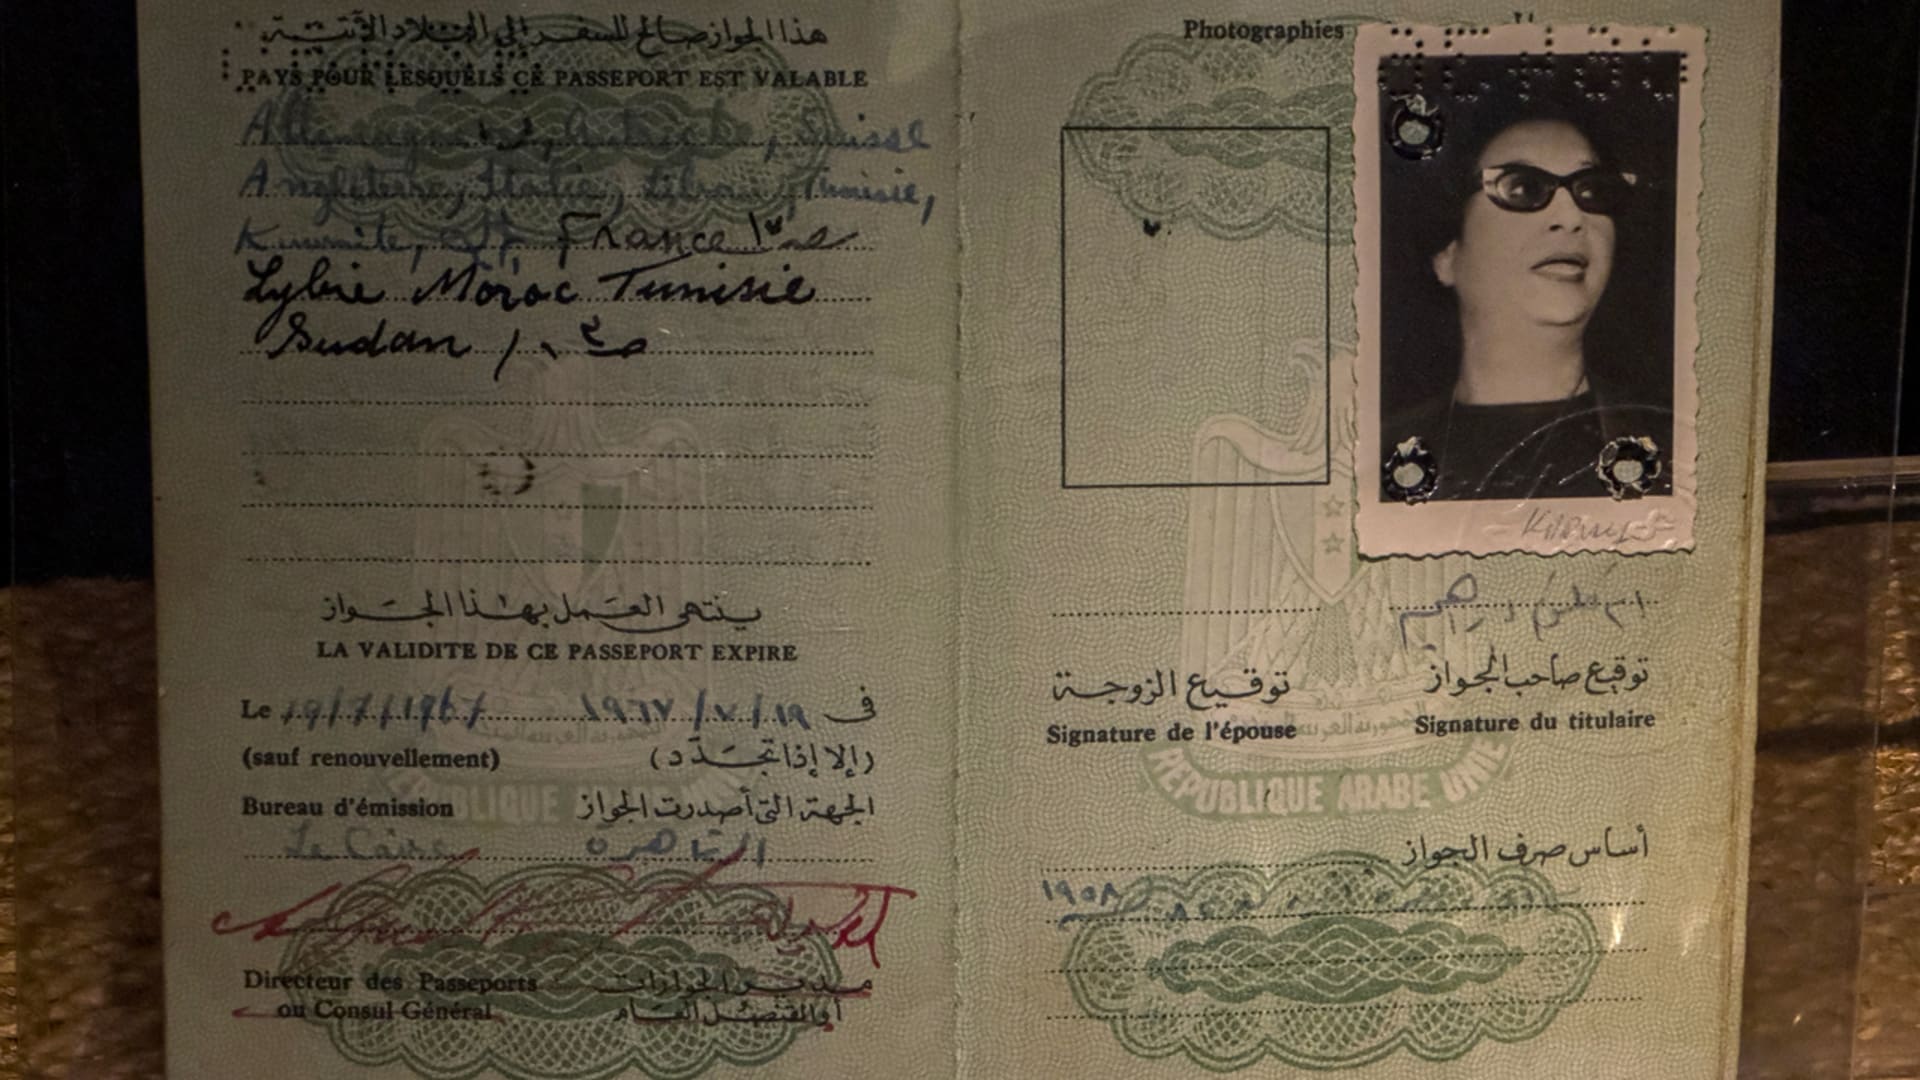 هذا الجواز صالح للسفر إلى البلاد الآتية
PAYS POUR LESQUELS CE PASSEPORT EST VALABLE
Allemagne, Autriche, Suisse
Angleterre, Italie, Liban, Tunisie,
France
Lybie Moroc Tunisie
Sudan
ينتهى العمل بهذا الجواز
LA VALIDITE DE CE PASSEPORT EXPIRE
Le 19/7/1967 ١٩٦٧/٧/١٩ فى
(sauf renouvellement) (إلا إذا تجدد)
Bureau d'émission الجهة التى أصدرت الجواز
Le Caire القاهرة
Directeur des Passeports مدير الجوازات
ou Consul Général أو القنصل العام
Photographies
توقيع الزوجة توقيع صاحب الجواز
Signature de l'épouse Signature du titulaire
REPUBLIQUE ARABE UNIE
أساس صرف الجواز
١٩٥٨